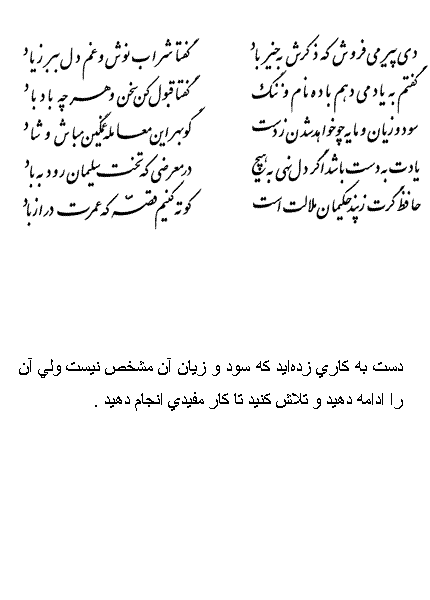 دی پیر می فروش که ذکرش به خیر باد گفتا شراب نوش و غم دل ببر ز یاد
گفتم به باد می دهم باده نام و ننگ گفتا قبول کن سخن و هر چه باد باد
سود و زیان و مایه چو خواهد شدن ز دست گو بهر این معامله غمگین مباش و شاد
بادت به دست باشد اگر دل نهی به هیچ در معرضی که تخت سلیمان رود به باد
حافظ گرت ز پند حکیمان ملالت است کوته کنیم قصه که عمرت دراز باد
دست به کاري زده‌ايد که سود و زيان آن مشخص نيست ولي آن
را ادامه دهيد و تلاش کنيد تا کار مفيدي انجام دهيد .